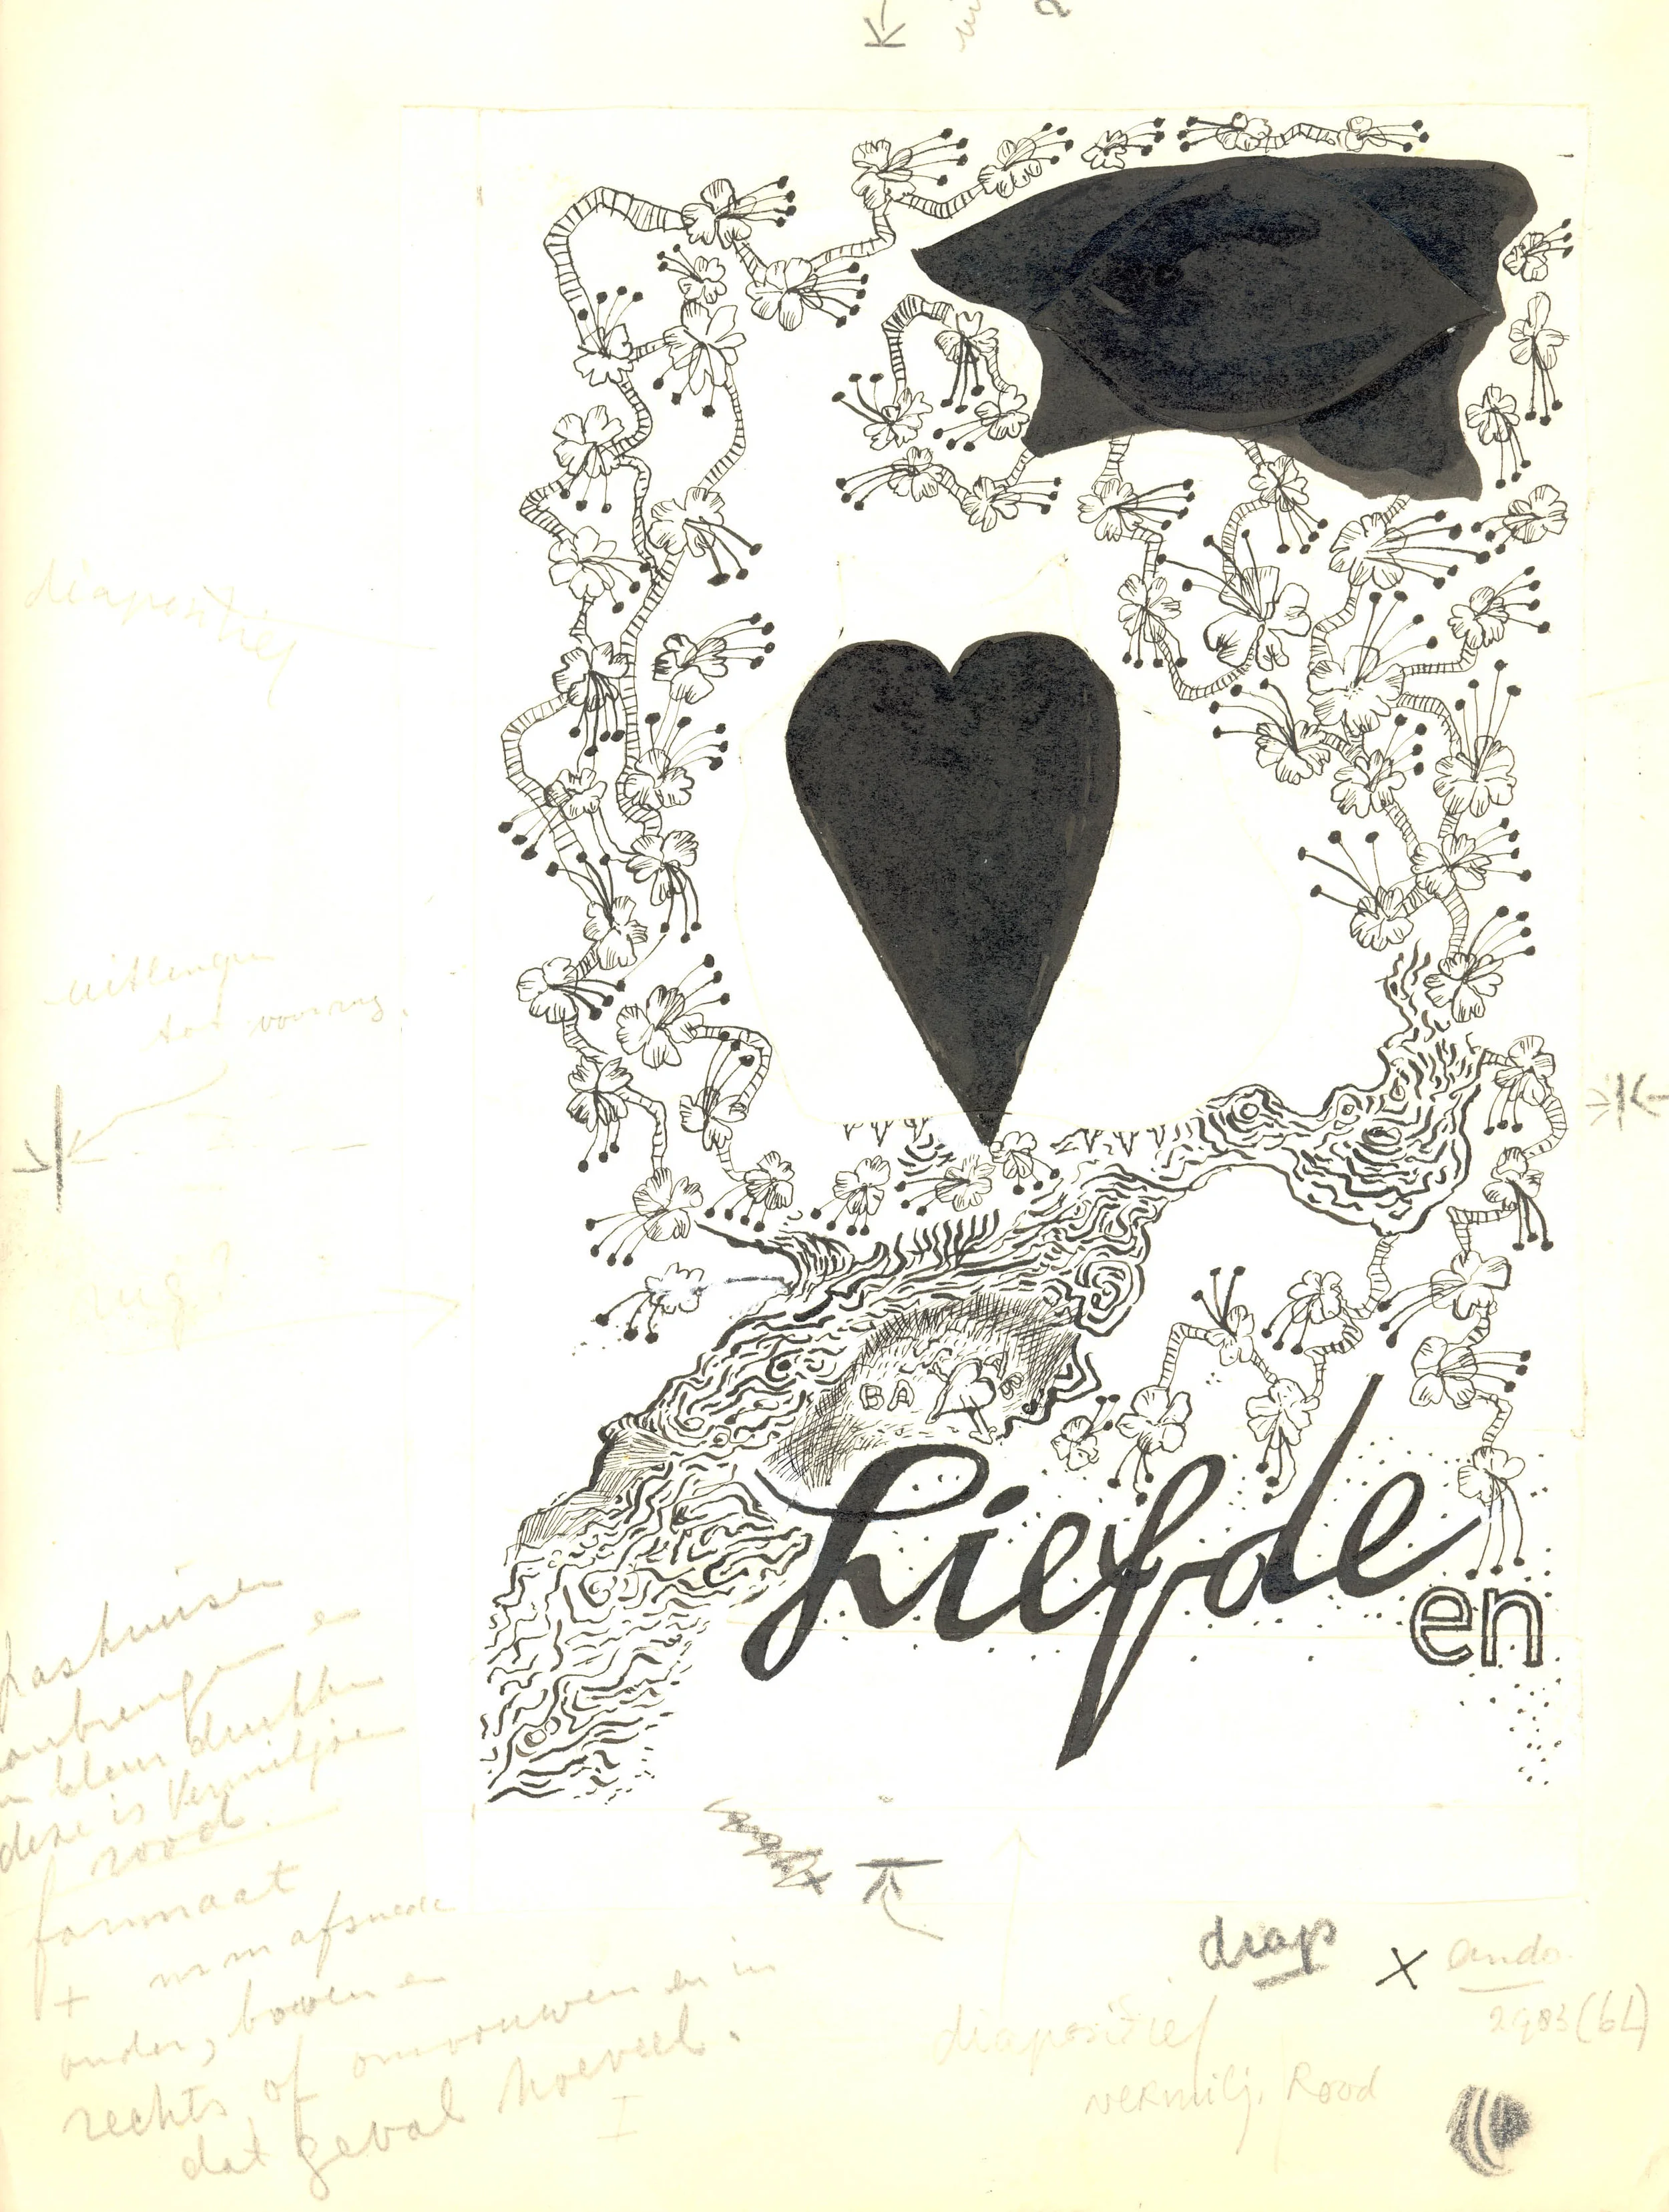 diapositief
uitlengen
tot voorrug.
rug?
BA
Liefde
en
paskruisen
aanbrengen en
in kleur drukken
deze is vermiljoen
rood.
formaat
+ mm afsnede
onder, boven en
rechts, of omvouwen en in
dat geval hoeveel.
diap
x
diapositief
vermilj. Rood
2983 (6L)